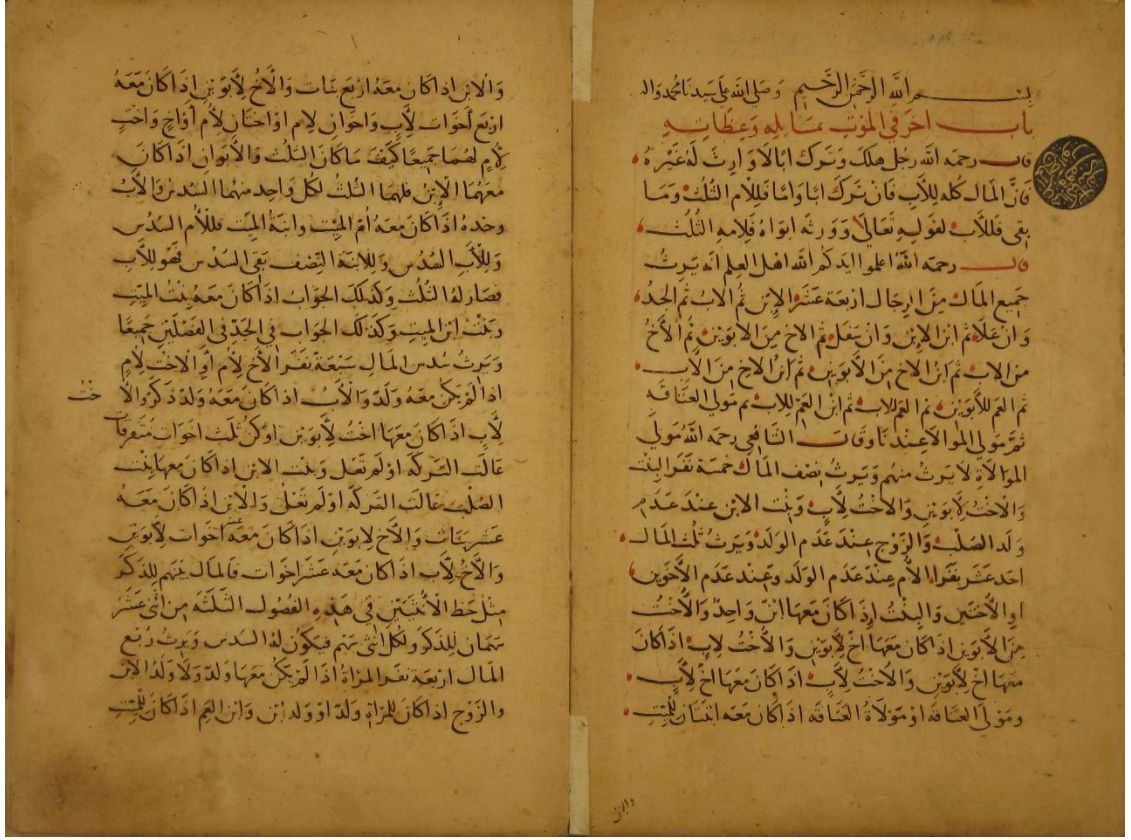 بسم الله الرحمن الرحيم وصلى الله على سيدنا محمد واله
باب اخر في الموت بمسائله وعظاته
قال رحمه الله رجل هلك وترك ابا لا وارث له غيره
فان المال كله للاب فان ترك ابا واما فللام الثلث وما
بقي فللاب لقوله تعالى وورثه ابواه فلامه الثلث
قال رحمه الله اعلموا ايدكم الله اهل العلم انه يرث
جميع المال من الرجال اربعة عشر الابن ثم الاب ثم الجد
وان علا ثم ابن الابن وان سفل ثم الاخ من الابوين ثم الاخ
من الاب ثم ابن الاخ من الابوين ثم ابن الاخ من الاب
ثم العم للابوين ثم العم للاب ثم ابن العم للاب ثم مولى العتاقه
ثم مولى الموالاة عندنا وقال الشافعي رحمه الله مولى
الموالاة لا يرث منهم ويرث نصف المال خمسة نفر البنت
والاخت لابوين والاخت لاب وبنت الابن عند عدم
ولد الصلب والزوج عند عدم الولد ويرث ثلث المال
احد عشر نفرا الام عند عدم الولد وعند عدم الاخوين
او الاختين والبنت اذا كان معها ابن واحد والاخت
من الابوين اذا كان معها اخ لابوين والاخت لاب اذا كان
معها اخ لابوين والاخت لاب اذا كان معها اخ لاب
ومولى العتاقه او مولاة العتاقه اذا كان معه ابنتان للميت
والابن
والابن اذا كان معه اربع بنات والاخ لابوين اذا كان معه
اربع اخوات لاب واخوان لام او اختان لام او اخ واخت
لام لهما جميعا كيف ما كان الثلث والابوان اذا كان
معهما الابن فلهما الثلث لكل واحد منهما السدس والاب
وحده اذا كان معه ام الميت وابنة الميت فللام السدس
وللاب السدس وللابنة النصف بقي السدس فهو للاب
فصار له الثلث وكذلك الجواب اذا كان معه بنت الميت
وبنت ابن الميت وكذلك الجواب في الجد في الفصلين جميعا
ويرث سدس المال سبعة نفر الاخ لام او الاخت لام
اذا لم يكن معه ولد والاب اذا كان معه ولد ذكر والا
خت
لاب اذا كان معها اخت لابوين او كن ثلث اخوات متفرقات
عالت التركة او لم تعل وبنت الابن اذا كان معها بنت
الصلب عالت التركة او لم تعل والابن اذا كان معه
عشر بنات والاخ لابوين اذا كان معه عشر اخوات لابوين
والاخ لاب اذا كان معه عشر اخوات فالمال بينهم للذكر
مثل حظ الانثيين في هذه الفصول الثلثه من اثنى عشر
سهمان للذكر ولكل انثى سهم فيكون له السدس ويرث ربع
المال اربعة نفر المراة اذا لم يكن معها ولد ولا ولد الابن
والزوج اذا كان للمراة ولد او ولد ابن وابن العم اذا كان للميت